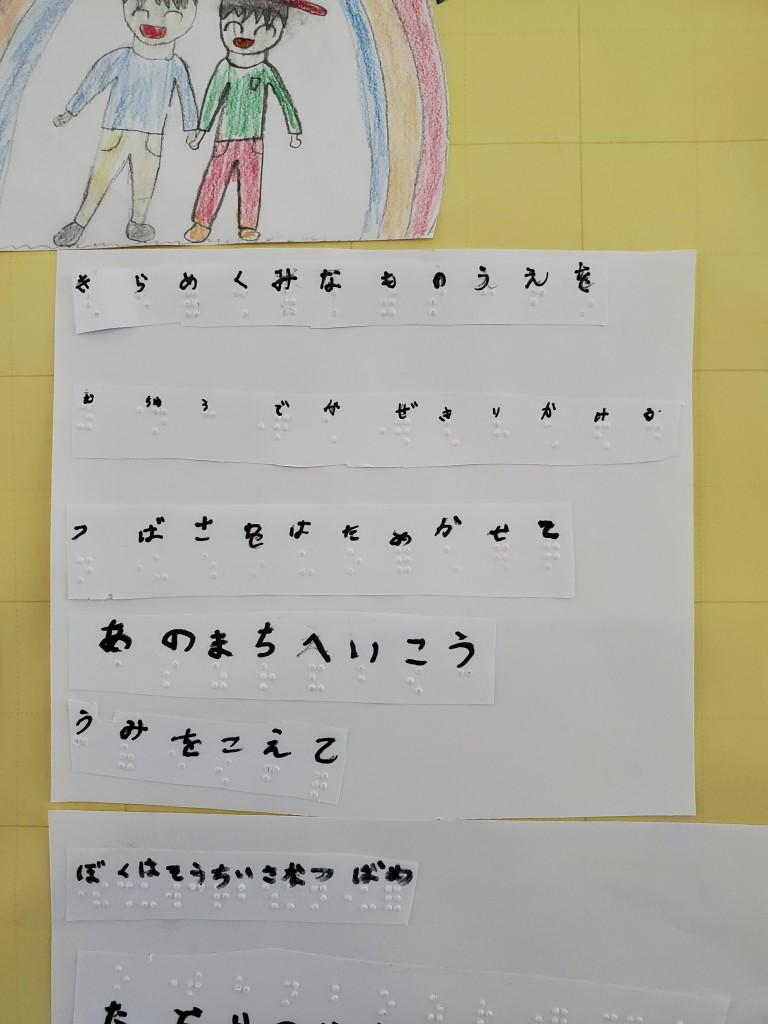 きらめくみなものうえを
むちゅうでかぜきりかける
つばさをはためかせて
あのまちへいこう
うみをこえて
ぼくはそうちいさなつばめ
たどり